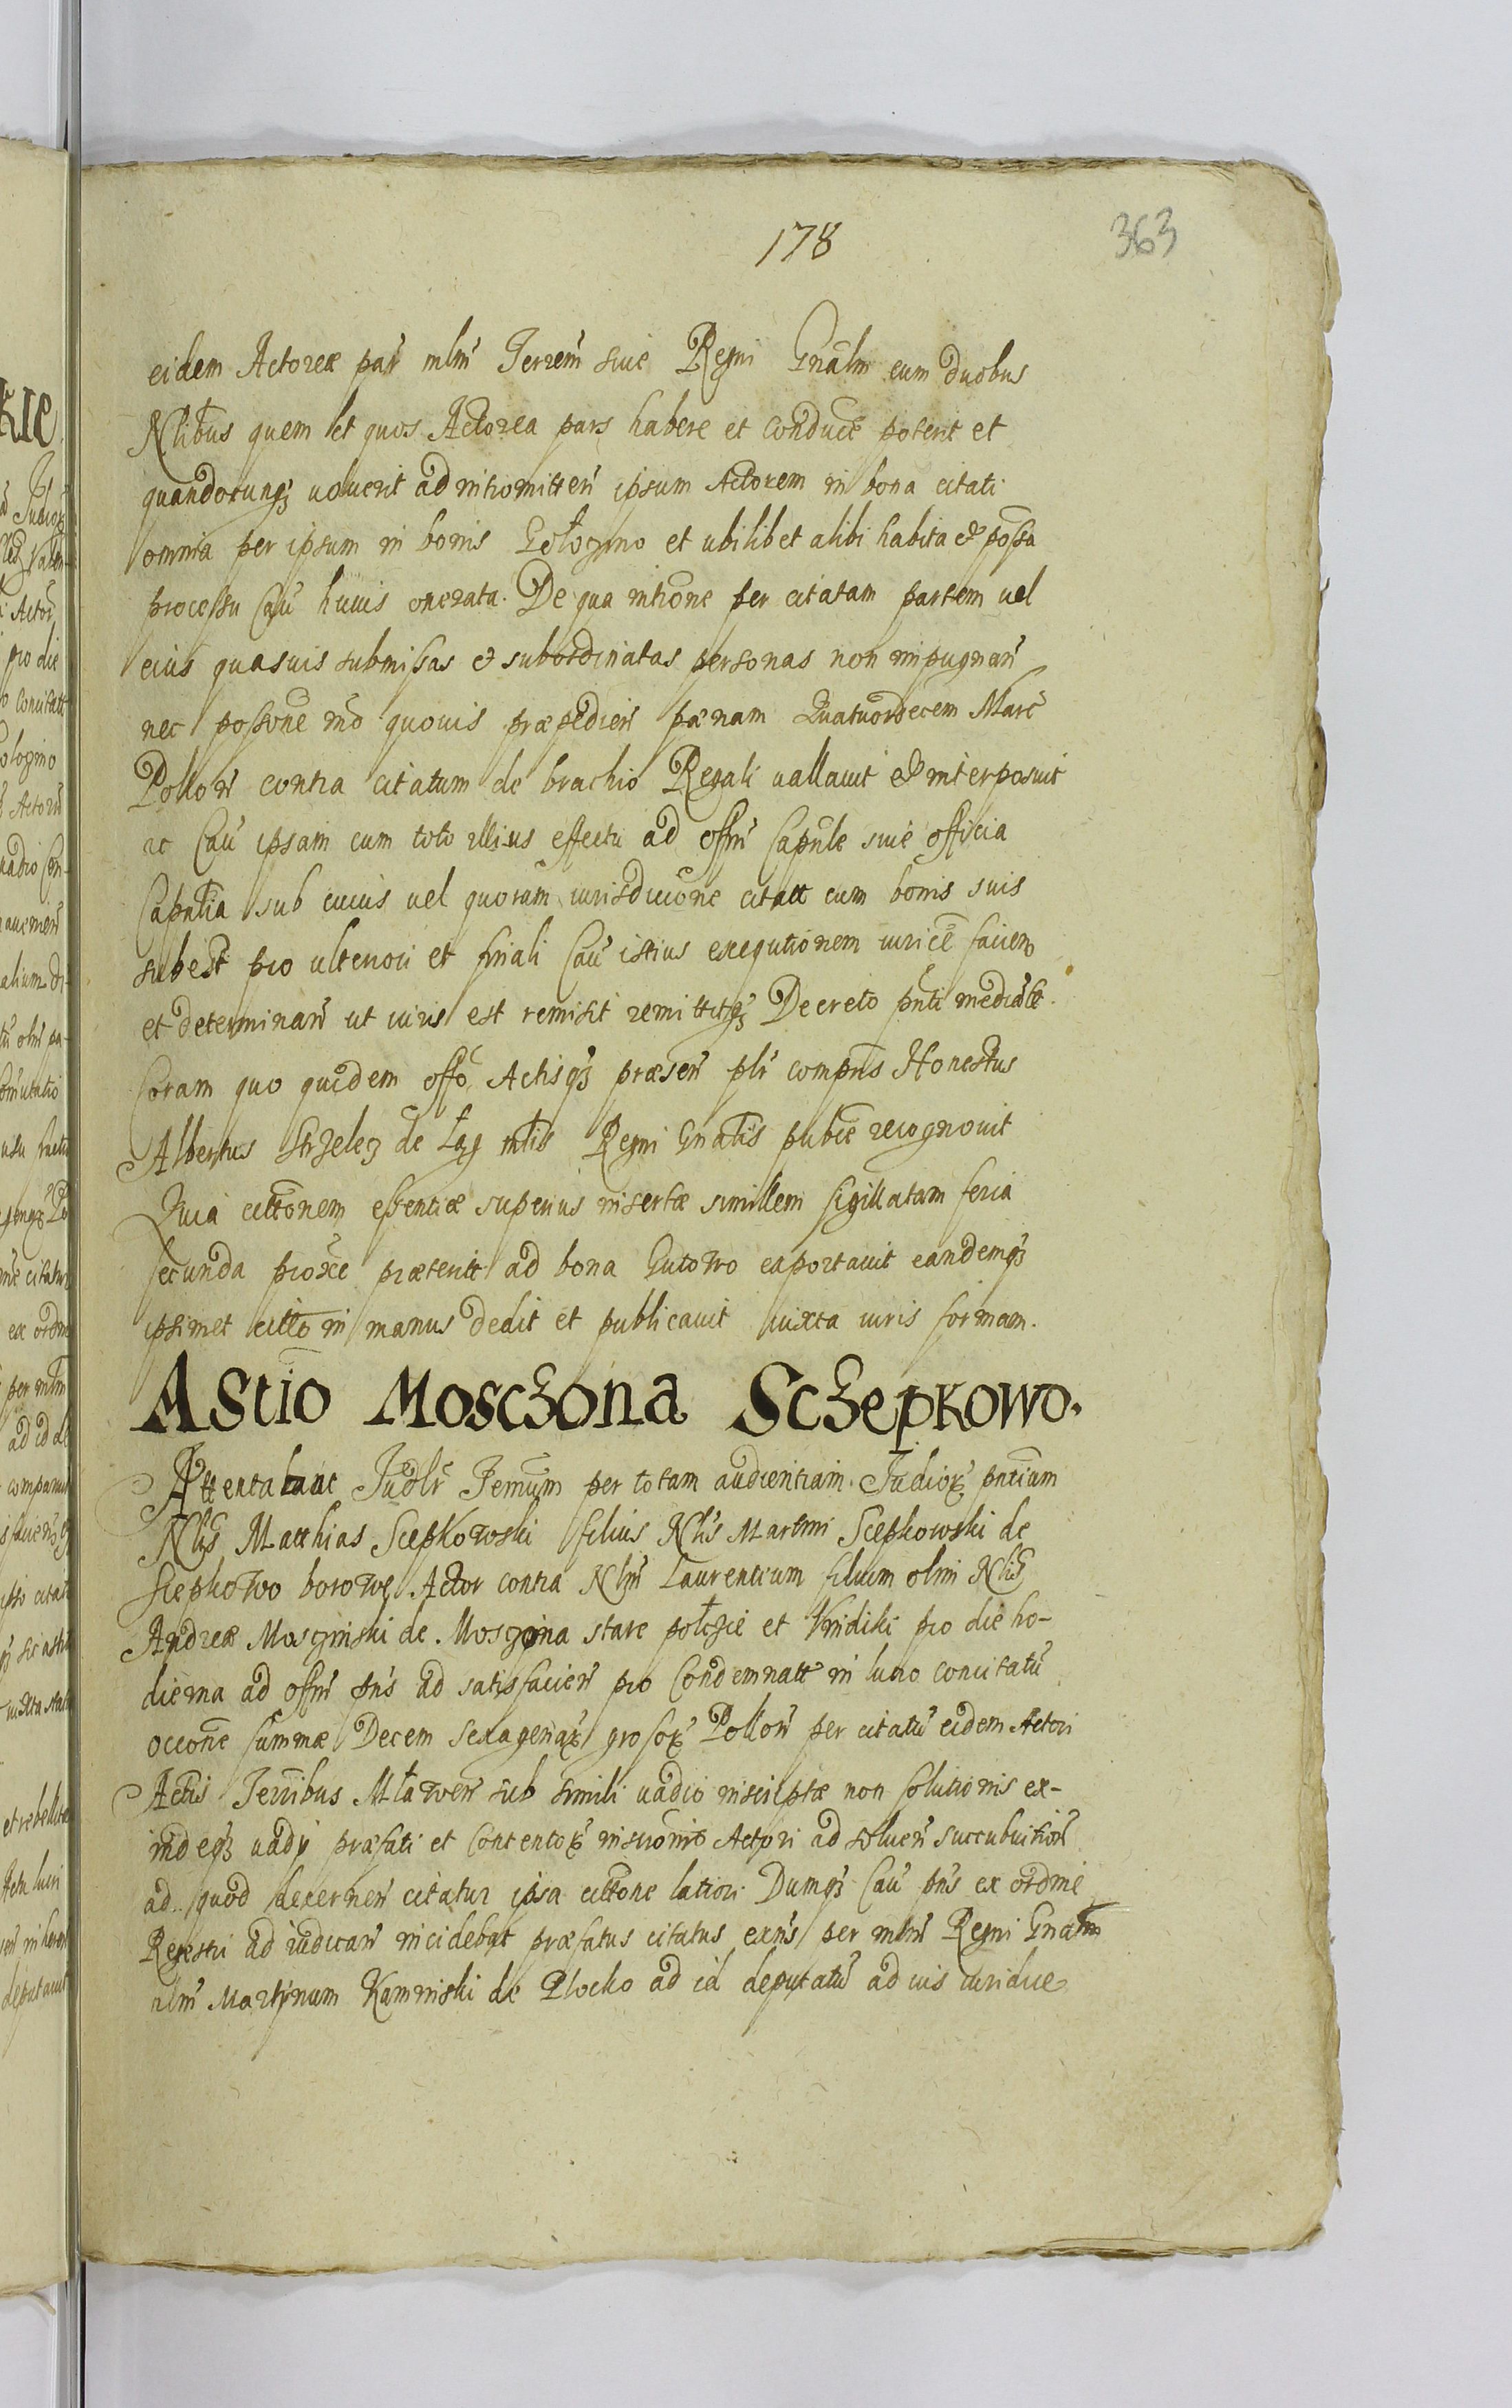 178
363
eidem Actoreæ par mlm Terrem siue Regni Gnalm cum duobus
Nlibus quem et quos Actorea pars habere et conducē poterit et
quandocunqȝ uoluerit ad intromitteñ ipsum Actorem in bona citati
omnia per ipsum in bonis Gołogino et ubilibet alibi habita & possa
processu Cāu huius onerata. De qua intione per citatam partem uel
eius quasuis submissas & subordinatas personas non impugnañ
nec possone mō quouis præpedieñ pænam Quatuordecem Marc
Polloñ contra citatum de brachio Regali uallauit & interposuit
ac Cāu ipsam cum toto illius effectu ad offm Capnle siue officia
Capnlia sub cuius uel quorum iurisdicione citatt cum bonis suis
subest pro ulteriori et finali Cāu istius exequtionem iurice facien
et determinañ ut iuris est remisit remittitqȝ Decreto pnti mediañte.
Coram quo quidem offo Actisqȝ præseñ plr compns Honestus
Albertus Strzelcz de Łęg mlis Regni Gnalis publce recognouit
Quia cittonem essentiæ superius insertæ simillem sigillatam feria
secunda proxe præteritt ad bona Gutowo exportauit eandemqȝ
ipsimet citto in manus dedit et publicauit iuxta iuris formam.
AStio Moscȝona Scȝepkowo.
Attentabat Judlr Temum per totam audientiam Judiorȝ pntium
Nlis Matthias Scepkowski filius Nlis Martini Scepkowski de
Scepkowo borowe Actor contra Nlm Laurentium filium olim Nlis
Andreæ Mosczinski de Mosczona stare potczie et Kndiki pro die ho-
dierna ad offm pns ad satisfacieñ pro Condemnatt in lucro concitatū
occone summæ Decem sexagenarȝ grosorȝ Polloñ per citatū eidem Actori
Actis Terribus Mławeñ sub simili uadio inscriptæ non solutionis ex-
indeqȝ uadij præfati et contentorȝ inscronis Actori ad solueñ succubuitioñ
ad quod decerneñ citatur ipsa cittone latiori Dumqȝ Cāu pns ex ordine
Regestri ad iudicañ incidebat præfatus citatus exns per mlm Regni Gnalm
nlm Martinum Kaminski de Plocko ad id deputatū ad iuis iuridice